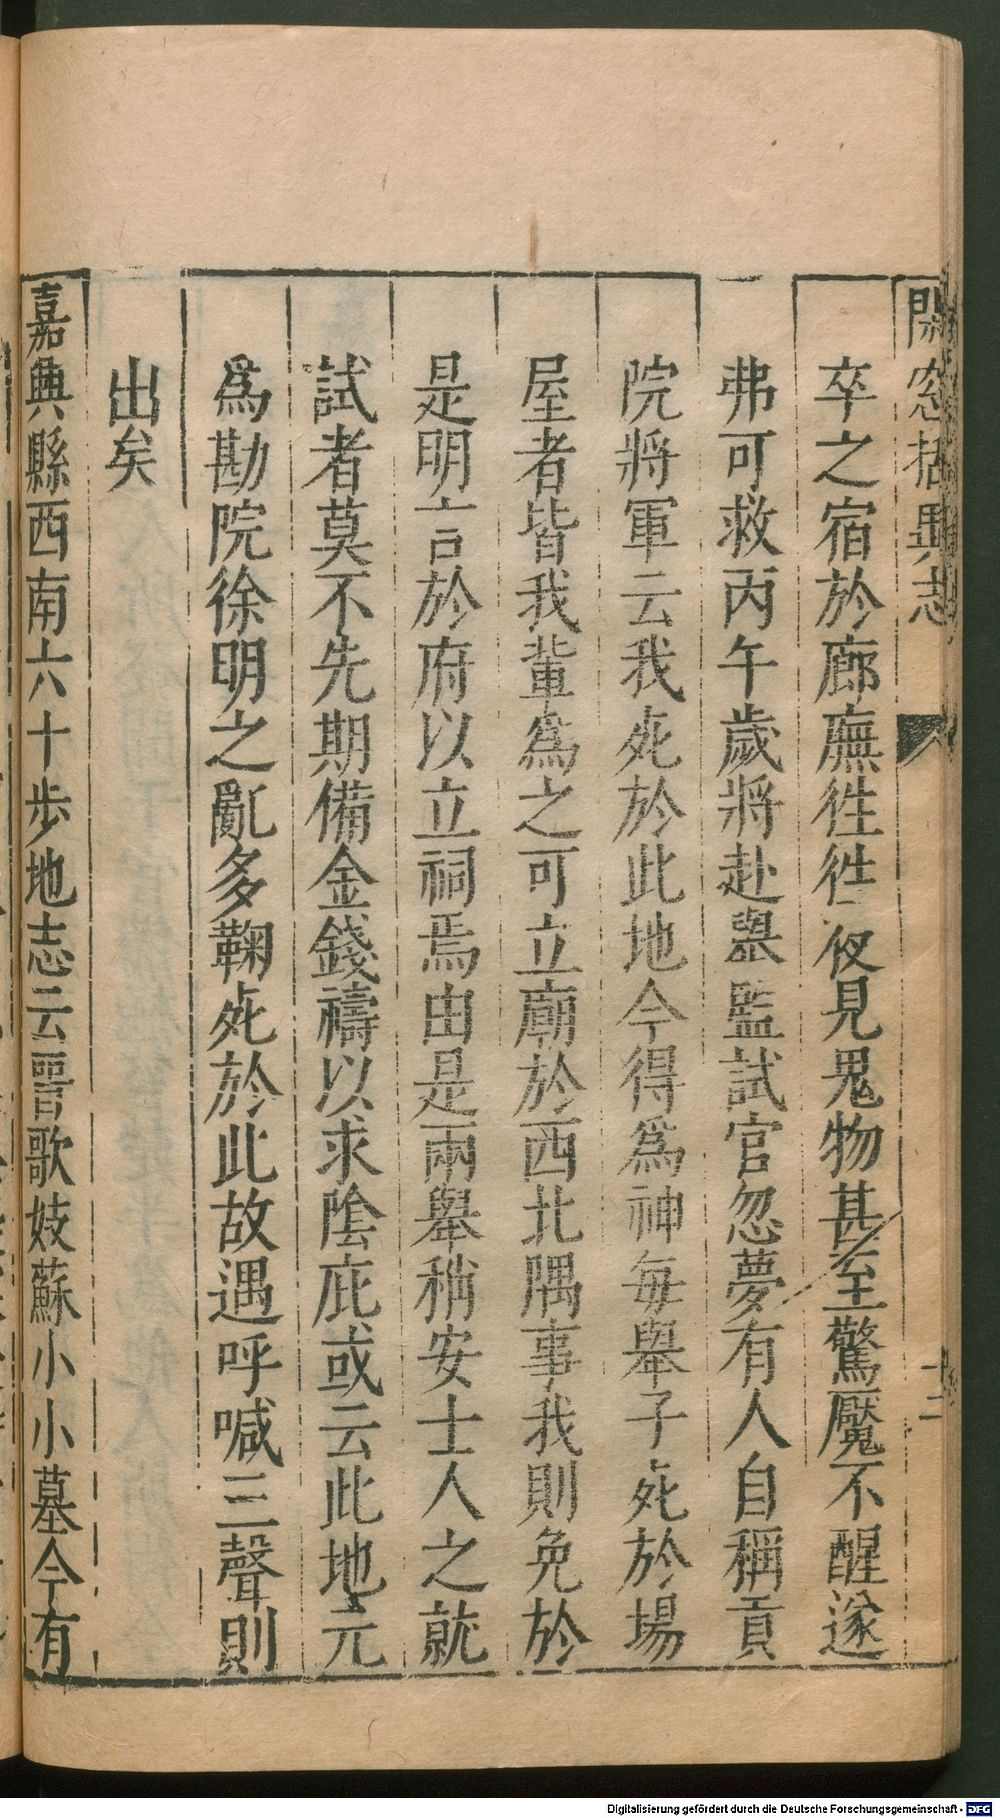 閑窓括異志
十二
卒之宿於廊廡徃徃夜見鬼物甚至驚魘不醒遂
弗可救丙午歲將赴舉監試官忽夢有人自稱貢
院將軍云我死於此地今得爲神每舉子死於場
屋者皆我輩爲之可立廟於西北隅事我則免於
是明言於府以立祠焉由是兩舉稍安士人之就
試者莫不先期備金錢禱以求陰庇或云此地元
爲勘院徐明之亂多鞠死於此故遇呼喊三聲則
出矣
嘉興縣西南六十步地志云晉歌妓蘇小小墓今有
Digitalisierung gefördert durch die Deutsche Forschungsgemeinschaft - DFG